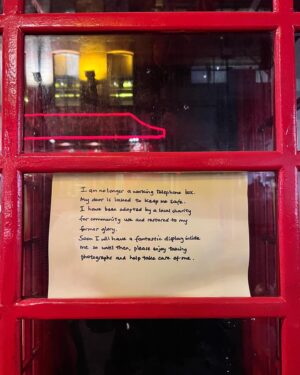 I am no longer a working telephone box.
My door is locked to keep me safe.
I have been adopted by a local charity
for community use and restored to my
former glory.
Soon I will have a fantastic display inside
me so until then, please enjoy taking
photographs and help take care of me.